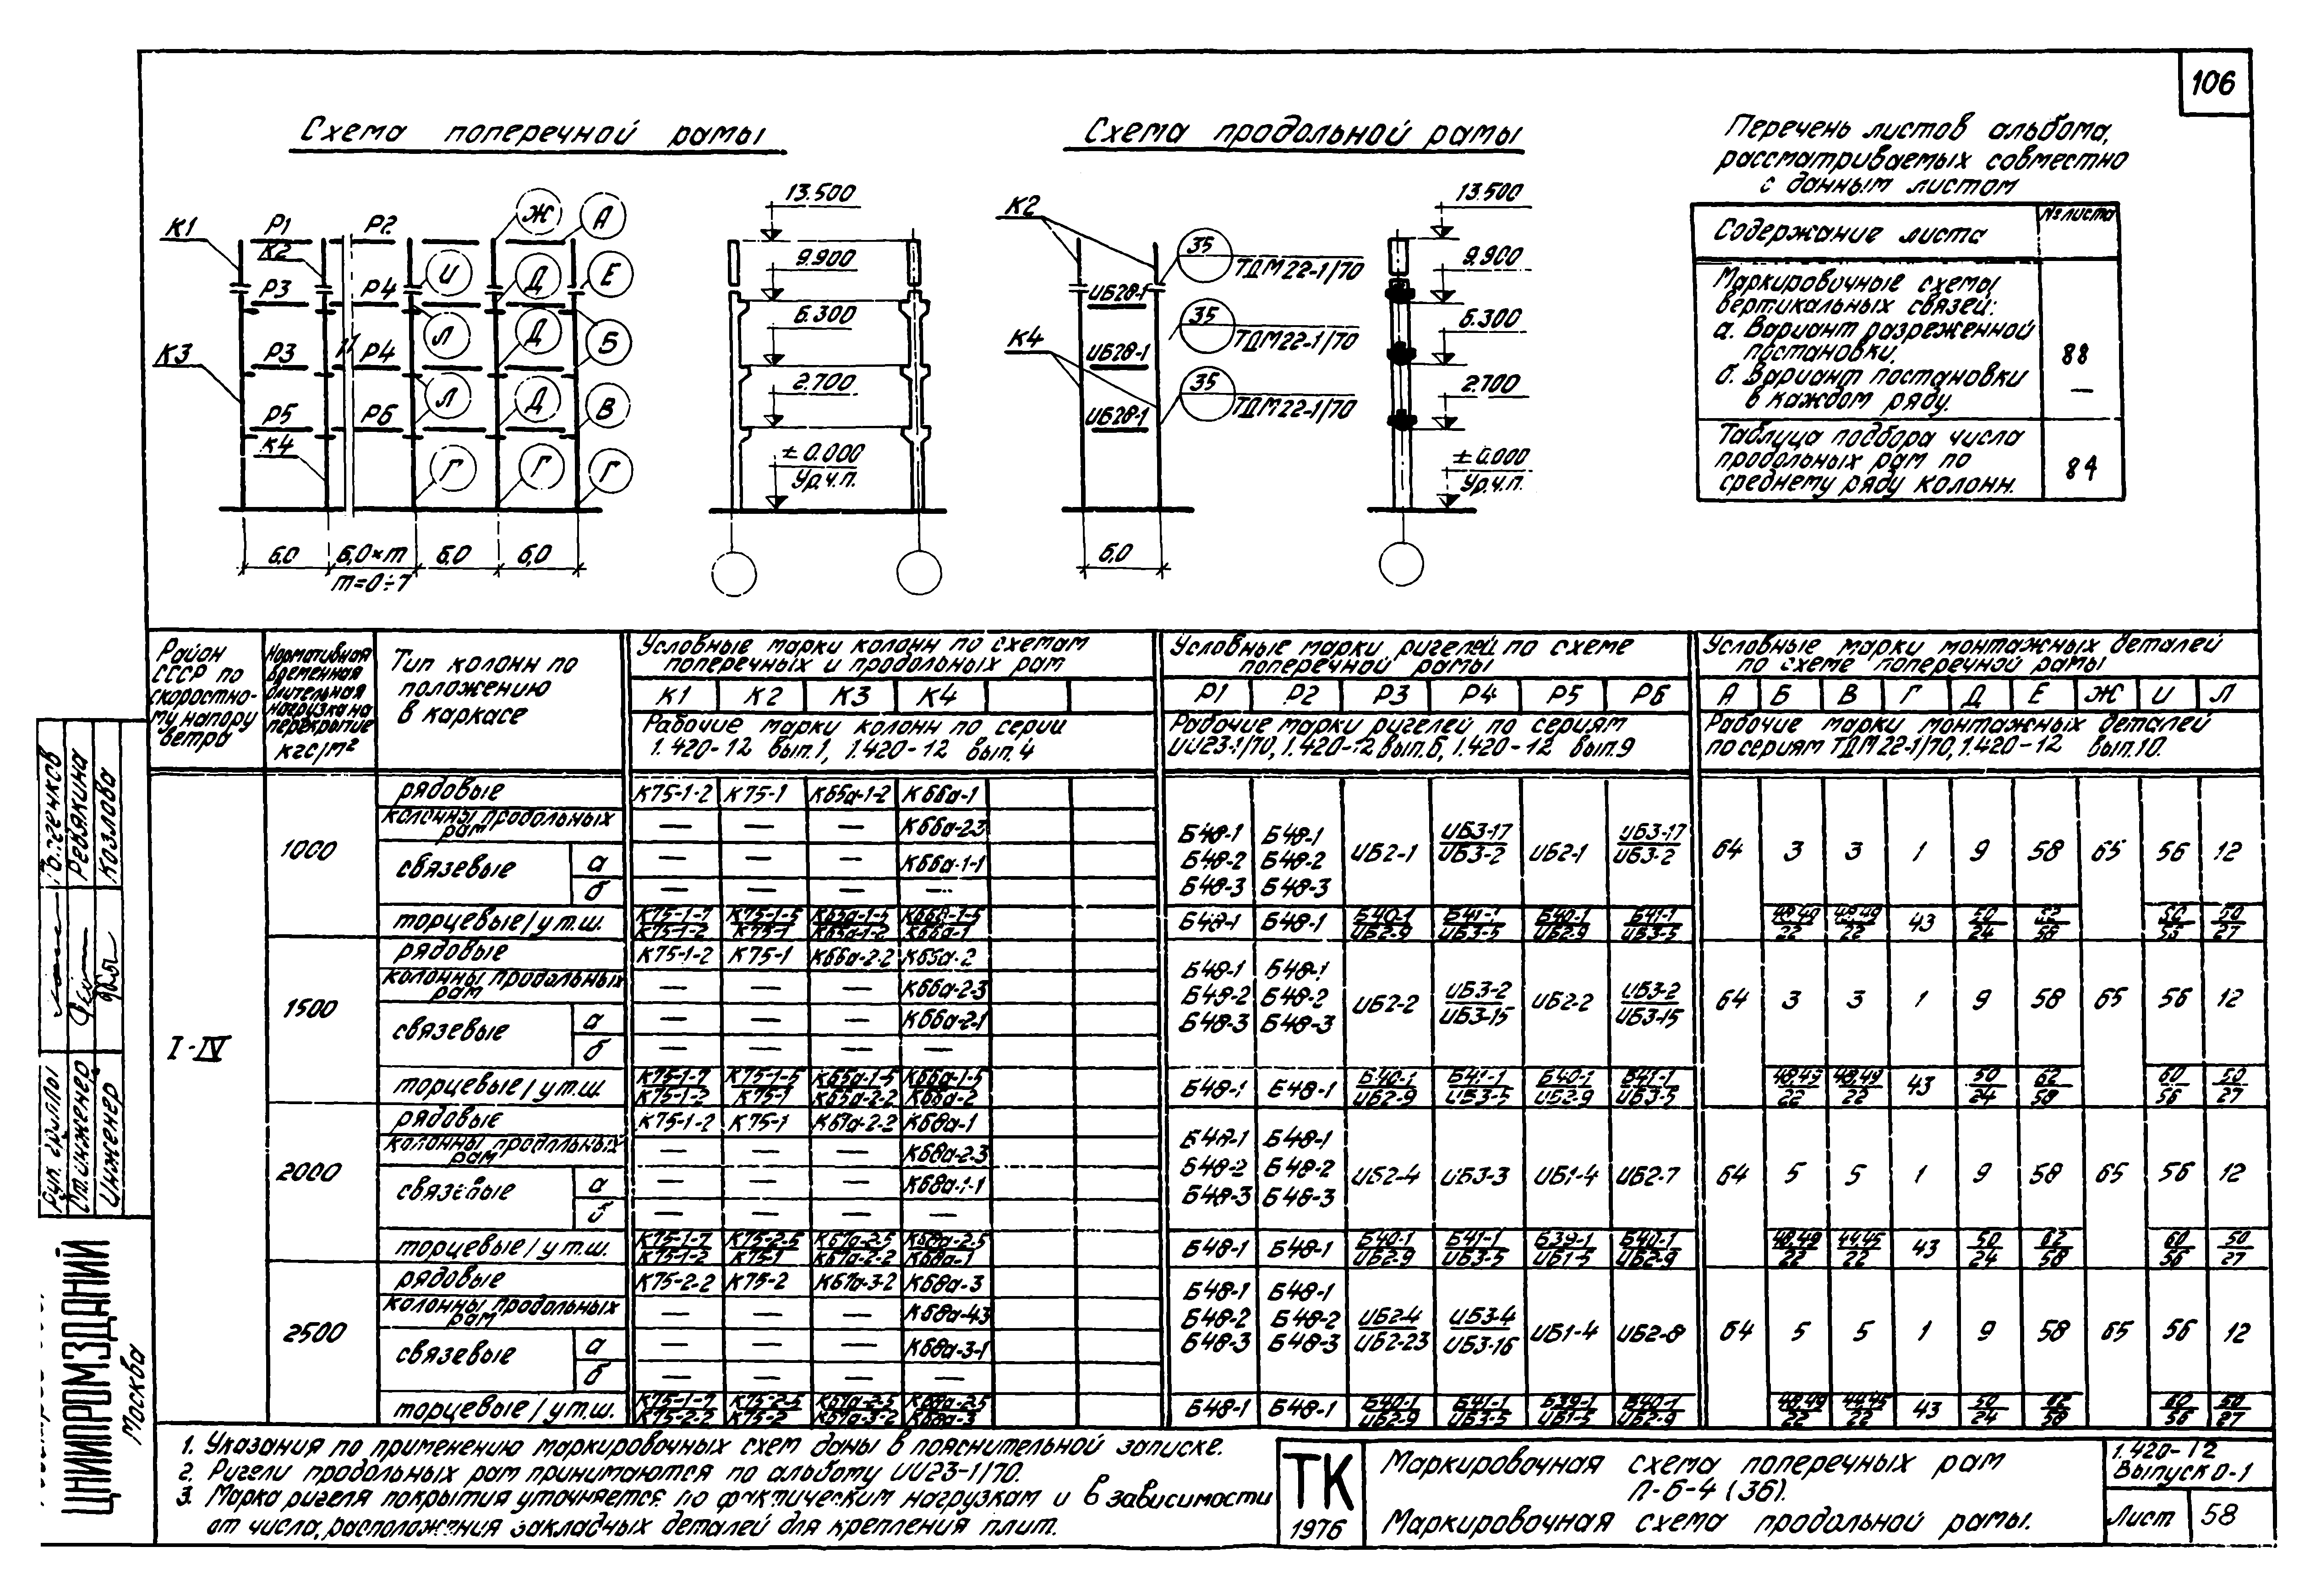 106
Схема поперечной рамы
Схема продольной рамы
Перечень листов альбома,
рассматриваемых совместно
с данным листом
Содержание листа
№ листа
Маркировочные схемы
вертикальных связей:
а. Вариант разреженной
постановки.
88
б. Вариант постановки
в каждом ряду.
—
Таблица подбора числа
продольных рам по
среднему ряду колонн.
84
К1 Р1 К2 Р2 Ж А
Р3 Р4 И Д Е
К3 Р3 Р4 Л Д Б
Р5 Р6 Л Д В
К4 Г Г Г
6,0 6,0×m 6,0 6,0
m=0÷7
13.500
9.900
6.300
2.700
± 0.000
Ур.ч.п.
К2
К4
ИБ28-1
ИБ28-1
ИБ28-1
35 ТДМ22-1/70
35 ТДМ22-1/70
35 ТДМ22-1/70
6,0
13.500
9.900
6.300
2.700
± 0.000
Ур.ч.п.
Район
СССР по
скоростно-
му напору
ветра
Нормативная
временная
длительная
нагрузка на
перекрытие
кгс/м²
Тип колонн по
положению
в каркасе
Условные марки колонн по схемам
поперечных и продольных рам
К1 К2 К3 К4
Рабочие марки колонн по серии
1.420-12 вып.1, 1.420-12 вып.4
Условные марки ригелей по схеме
поперечной рамы
Р1 Р2 Р3 Р4 Р5 Р6
Рабочие марки ригелей по сериям
ИИ23-1/70, 1.420-12 вып.6, 1.420-12 вып.9
Условные марки монтажных деталей
по схеме поперечной рамы
А Б В Г Д Е Ж И Л
Рабочие марки монтажных деталей
по сериям ТДМ 22-1/70, 1.420-12 вып.10.
I-IV
1000
рядовые К75-1-2 К75-1 К65а-1-2 К66а-1
колонны продольных рам — — — К66а-2-3
связевые а — — — К66а-1-1
б — — — —
Б48-1 Б48-1
Б48-2 Б48-2
Б48-3 Б48-3
ИБ2-1 ИБ3-17/ИБ3-2 ИБ2-1 ИБ3-17/ИБ3-2
64 3 3 1 9 58 65 56 12
торцевые/у т.ш. К75-1-7/К75-1-2 К75-1-5/К75-1 К65а-1-5/К65а-1-2 К66а-1-5/К66а-1
Б48-1 Б48-1 Б40-1/ИБ2-9 Б41-1/ИБ3-5 Б40-1/ИБ2-9 Б41-1/ИБ3-5
48,49/22 48,49/22 43 50/24 62/58 60/56 50/27
1500
рядовые К75-1-2 К75-1 К66а-2-2 К65а-2
колонны продольных рам — — — К66а-2-3
связевые а — — — К66а-2-1
б — — — —
Б48-1 Б48-1
Б48-2 Б48-2
Б48-3 Б48-3
ИБ2-2 ИБ3-2/ИБ3-15 ИБ2-2 ИБ3-2/ИБ3-15
64 3 3 1 9 58 65 56 12
торцевые/у т.ш. К75-1-7/К75-1-2 К75-1-5/К75-1 К65а-1-5/К65а-2-2 К66а-1-5/К66а-2
Б48-1 Б48-1 Б40-1/ИБ2-9 Б41-1/ИБ3-5 Б40-1/ИБ2-9 Б41-1/ИБ3-5
48,49/22 48,49/22 43 50/24 62/58 60/56 50/27
2000
рядовые К75-1-2 К75-1 К67а-2-2 К68а-1
колонны продольных рам — — — К68а-2-3
связевые а — — — К68а-1-1
б — — — —
Б48-1 Б48-1
Б48-2 Б48-2
Б48-3 Б48-3
ИБ2-4 ИБ3-3 ИБ1-4 ИБ2-7
64 5 5 1 9 58 65 56 12
торцевые/у т.ш. К75-1-7/К75-1-2 К75-2-5/К75-1 К67а-2-5/К67а-2-2 К68а-2-5/К68а-1
Б48-1 Б48-1 Б40-1/ИБ2-9 Б41-1/ИБ3-5 Б39-1/ИБ1-5 Б40-1/ИБ2-9
48,49/22 44,45/22 43 50/24 62/58 60/56 50/27
2500
рядовые К75-2-2 К75-2 К67а-3-2 К68а-3
колонны продольных рам — — — К68а-43
связевые а — — — К68а-3-1
б — — — —
Б48-1 Б48-1
Б48-2 Б48-2
Б48-3 Б48-3
ИБ2-4/ИБ2-23 ИБ3-4/ИБ3-16 ИБ1-4 ИБ2-8
64 5 5 1 9 58 65 56 12
торцевые/у т.ш. К75-1-7/К75-2-2 К75-2-5/К75-2 К67а-2-5/К67а-3-2 К68а-2-5/К68а-3
Б48-1 Б48-1 Б40-1/ИБ2-9 Б41-1/ИБ3-5 Б39-1/ИБ1-5 Б40-1/ИБ2-9
48,49/22 44,45/22 43 50/24 62/58 60/56 50/27
1. Указания по применению маркировочных схем даны в пояснительной записке.
2. Ригели продольных рам принимаются по альбому ИИ23-1/70.
3. Марка ригеля покрытия уточняется по фактическим нагрузкам и в зависимости
от числа, расположения закладных деталей для крепления плит.
ТК
1976
Маркировочная схема поперечных рам
П-6-4 (36).
Маркировочная схема продольной рамы.
1.420-12
Выпуск 0-1
Лист 58
Рук. группы
Ст. инженер Ревякина
Инженер Козлова
ЦНИИПРОМЗДАНИЙ
Москва